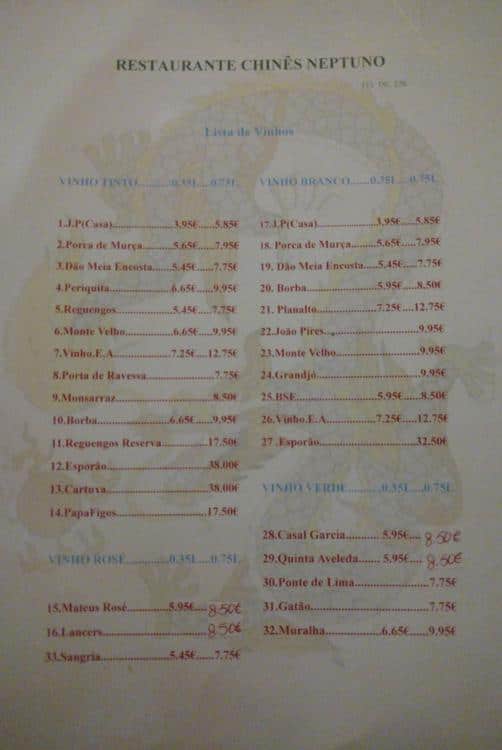 RESTAURANTE CHINÊS NEPTUNO
Lista de Vinhos
VINHO TINTO..........0,35L....0,75L
1.J.P(Casa)........................3.95€.....5.85€
2.Porca de Murça..........5.65€.....7.95€
3.Dão Meia Encosta......5.45€.....7.75€
4.Periquita......................6.65€.....9.95€
5.Reguengos...................5.45€....7.75€
6.Monte Velho................6.65€....9.95€
7.Vinho.E.A....................7.25€....12.75€
8.Porta de Ravessa......................7.75€
9.Monsarraz..................................8.50€
10.Borba........................6.65€.....9.95€
11.Reguengos Reserva..............17.50€
12.Esporão..................................38.00€
13.Cartuxa..................................38.00€
14.PapaFigos..............................17.50€
VINHO ROSÉ............0,35L....0,75L
15.Mateus Rosé............5.95€.....8,50€
16.Lancers...............................8,50€
33.Sangria....................5.45€.....7.75€
VINHO BRANCO......0,75L....0,75L
17.J.P(Casa)....................3.95€....5.85€
18. Porca de Murça.......5.65€...7.95€
19. Dão Meia Encosta....5.45€...7.75€
20. Borba........................5.95€....8.50€
21. Planalto...................7.25€....12.75€
22.João Pires............................9.95€
23.Monte Velho.......................9.95€
24.Grandjó...............................9.95€
25.BSE............................5.95€.....8.50€
26.Vinho.E.A................7.25€....12.75€
27 .Esporão...............................32.50€
VINHO VERDE..........0,35L....0,75L
28.Casal Garcia............ 5.95€.... 8,50€
29.Quinta Aveleda....... 5.95€.... 8,50€
30.Ponte de Lima........................7.75€
31.Gatão.......................................7.75€
32.Muralha.....................6.65€.....9.95€